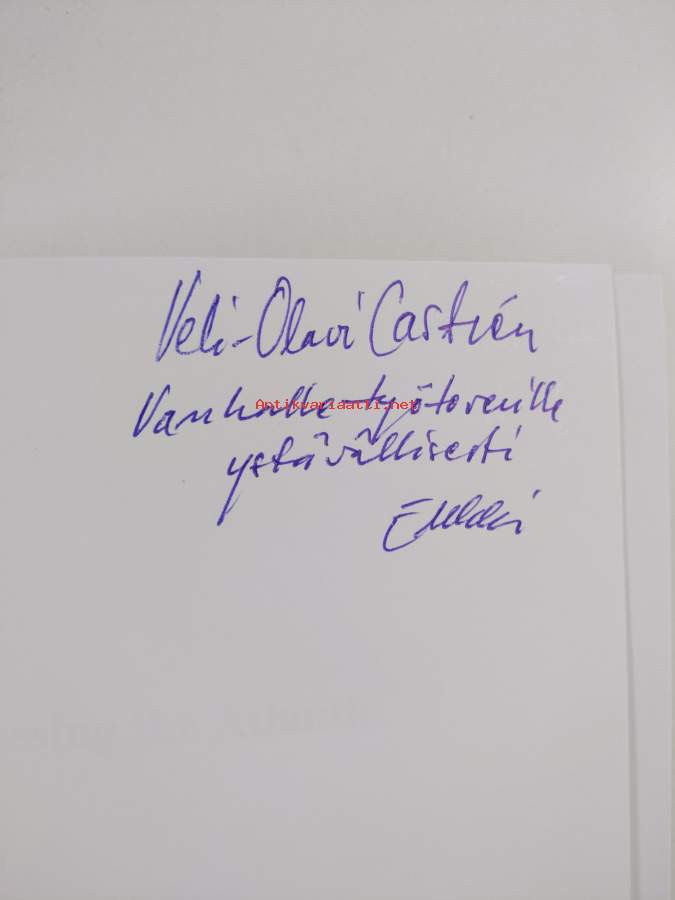 Veli-Olavi Castrén
Vanhalle työtoverille
Antikvariaatti.net
ystävällisesti
Erkki